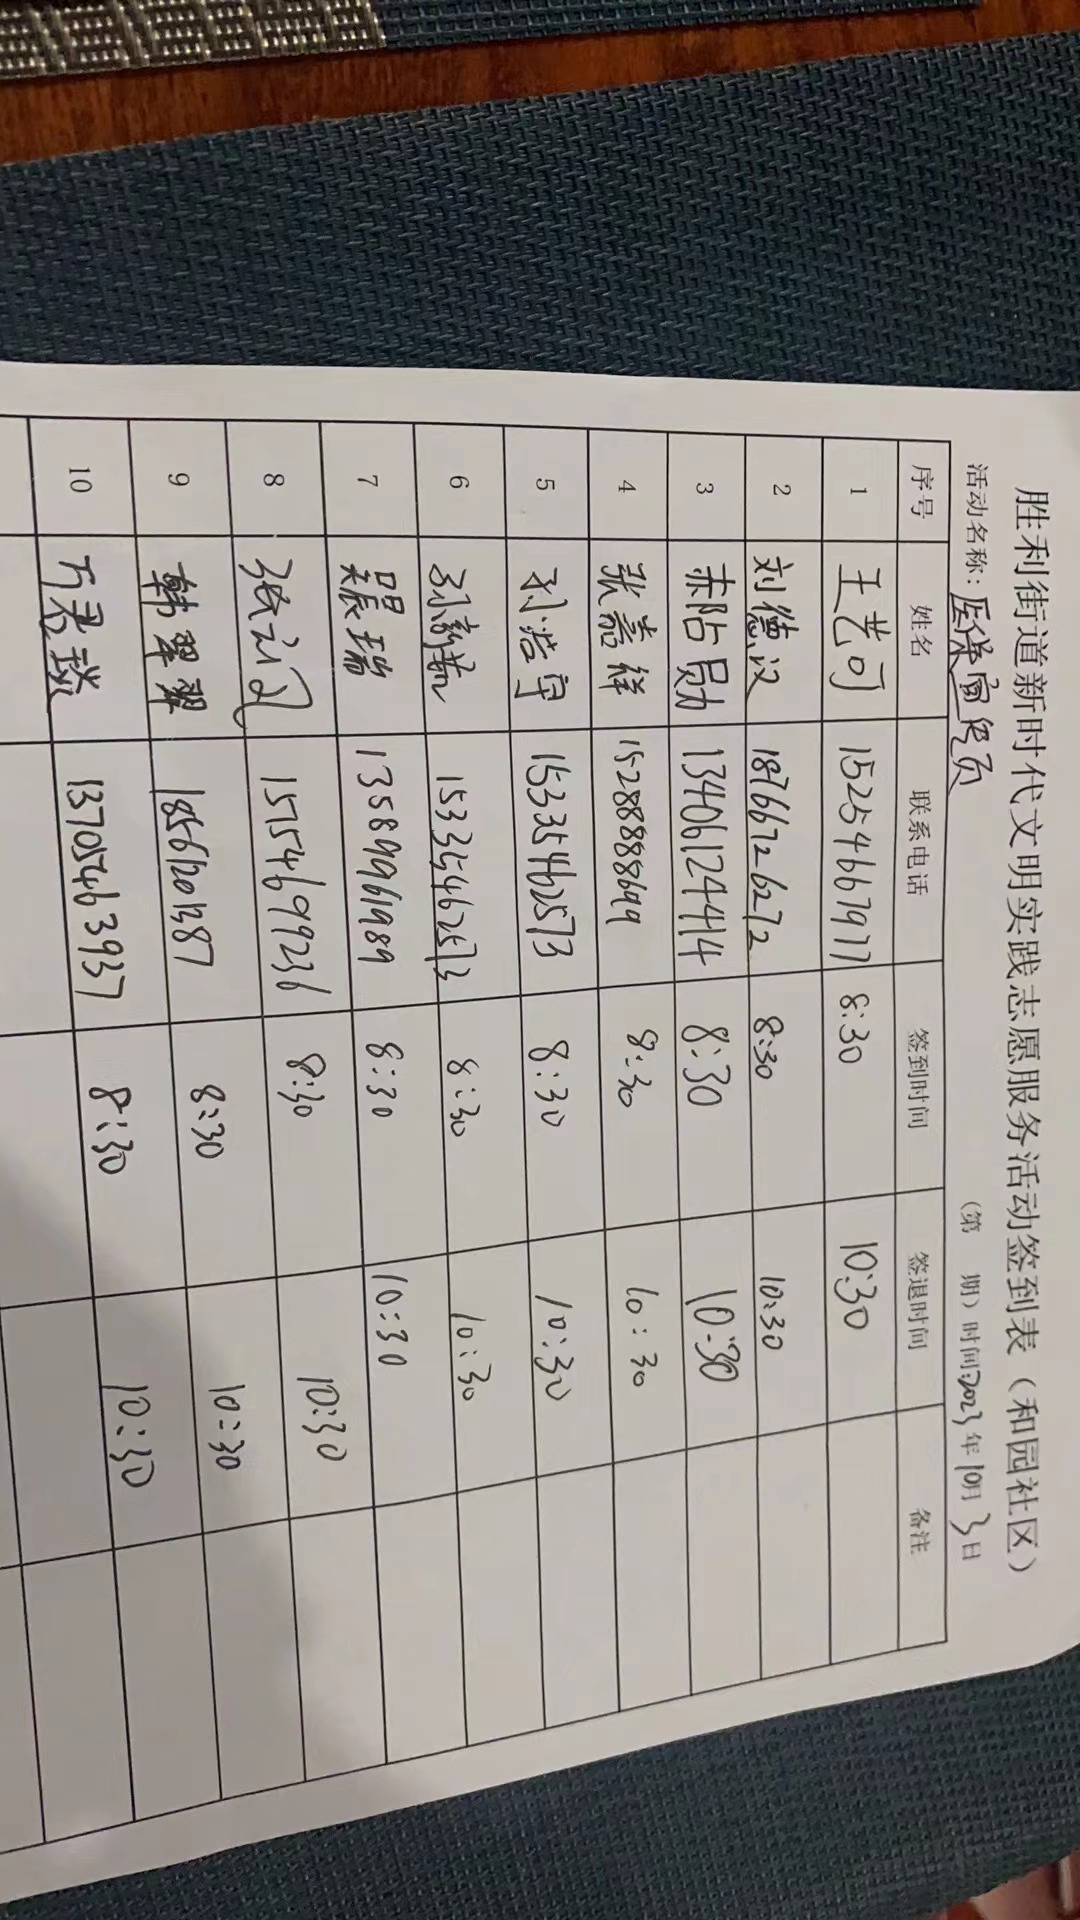 胜利街道新时代文明实践志愿服务活动签到表（和园社区）
活动名称：医保宣传员 （第 期）时间：2023年10月3日
序号 姓名 联系电话 签到时间 签退时间 备注
1 王艺可 15254667977 8:30 10:30
2 刘德汉 18766726272 8:30 10:30
3 赤占勋 13406124414 8:30 10:30
4 张嘉祥 15288888699 8:30 10:30
5 孙浩宇 15335462573 8:30 10:30
6 孙新茹 15335462573 8:30 10:30
7 瑞 13589961989 8:30 10:30
8 张 15754699236 8:30 10:30
9 韩翠翠 18561201387 8:30 10:30
10 万君琰 13705463937 8:30 10:30